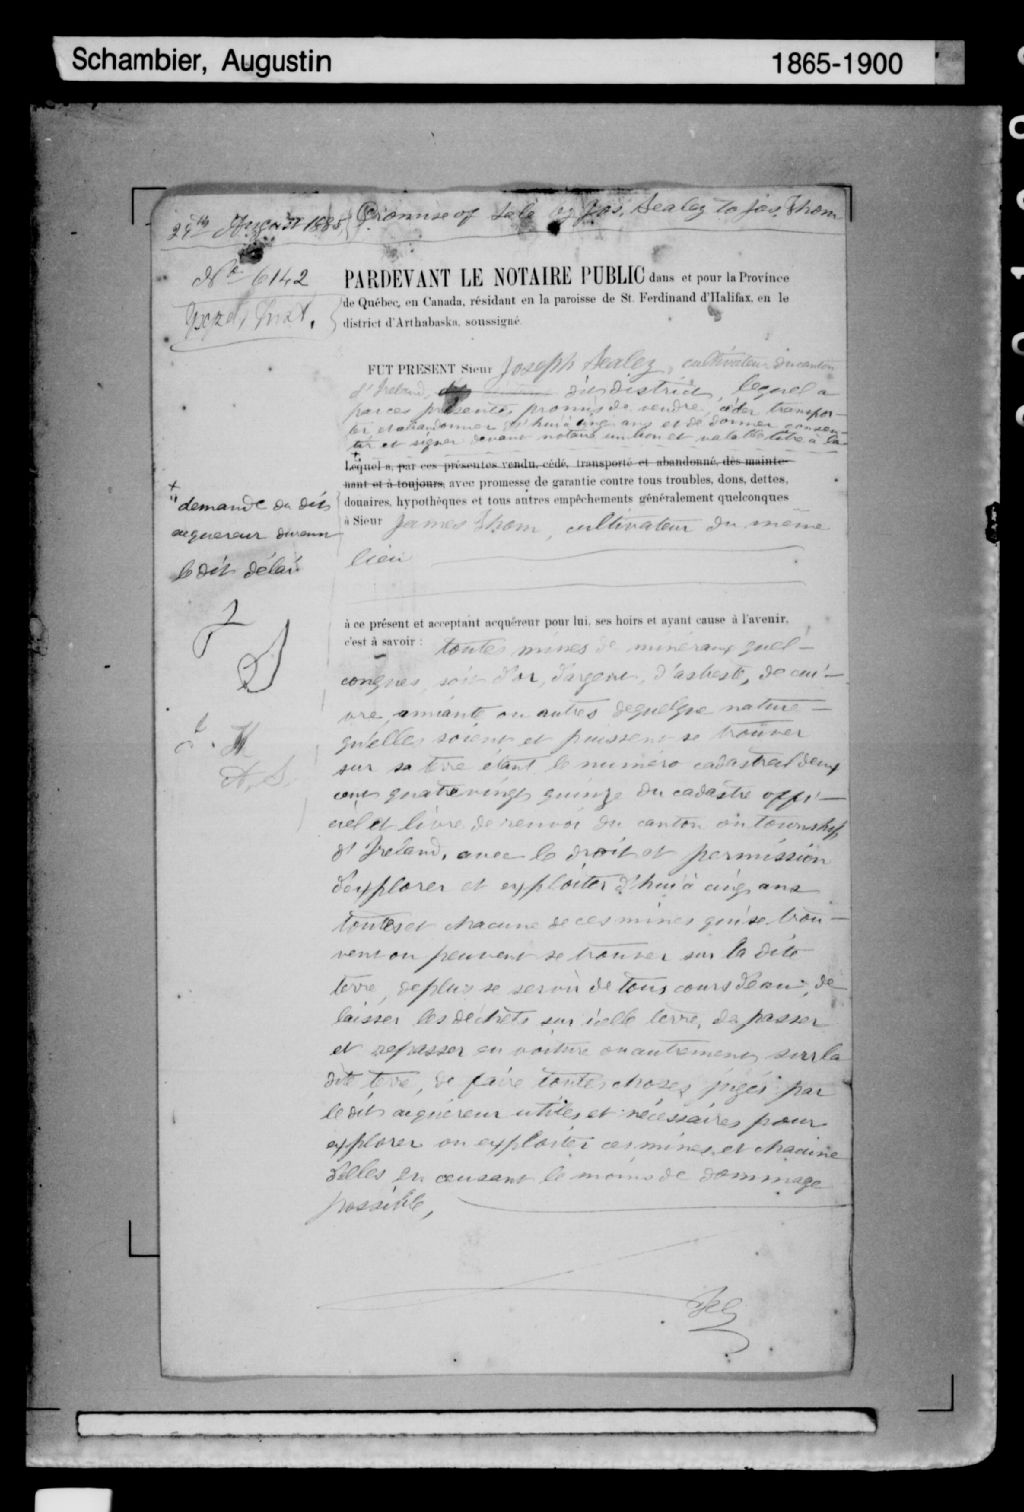 Schambier, Augustin 1865-1900
29th August 1885 } Promise of Sale by Jos. Sealey to Jas. Thom
No 6142
PARDEVANT LE NOTAIRE PUBLIC dans et pour la Province
de Québec, en Canada, résidant en la paroisse de St. Ferdinand d'Halifax, en le
district d'Arthabaska, soussigné.
FUT PRESENT Sieur Joseph Sealey, cultivateur du canton
d'Ireland, dit district, lequel a
par ces présentes promis de vendre, céder transpor-
ter et abandonner d'hui à cinq ans et de donner consen-
tir et signer devant notaire un bon et valable titre à la
Lequel a, par ces présentes vendu, cédé, transporté et abandonné, dès mainte-
nant et à toujours, avec promesse de garantie contre tous troubles, dons, dettes,
douaires, hypothèques et tous autres empêchements généralement quelconques
à Sieur James Thom, cultivateur du même
lieu
+
"demande du dit
acquereur durant
le dit délai
à ce présent et acceptant acquéreur pour lui, ses hoirs et ayant cause à l'avenir,
c'est à savoir : toutes mines de minéraux quel-
conques, soit d'or, d'argent, d'asbeste, de cui-
vre, amiante ou autres de quelque nature
qu'elles soient et puissent se trouver
sur sa terre étant le numéro cadastral deux
cent quatre vingt quinze du cadastre offi-
ciel et livre de renvoi du canton ou township
d'Ireland, avec le droit et permission
d'explorer et exploiter d'hui à cinq ans
toutes et chacune de ces mines qui se trou-
vent ou peuvent se trouver sur la dite
terre, de plus se servir de tous cours d'eau, de
laisser les déchets sur icelle terre, de passer
et repasser en voiture ou autrement sur la
dite terre, de faire toutes choses jugés par
le dit acquéreur utiles et nécessaires pour
explorer ou exploiter ces mines et chacune
d'elles en causant le moins de dommage
possible,